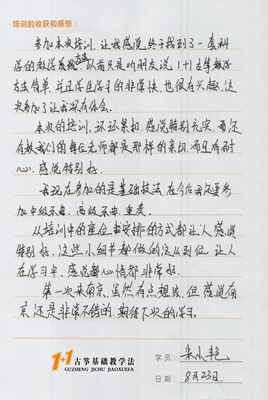 培训的收获和感想：
参加本次培训，让我感觉终于找到了一套科
学的教学系统，以前只是听朋友说1+1古筝教学
方法简单，并且学生学习的非常快，也很有兴趣，这
次参加了让我深有体会。
本次的培训，环环紧扣，感觉特别充实，而还
有教我们的每位老师都是那样的亲切，而且有耐
心，感觉特别好。
我现在参加的是基础技法，在今后我还要参
加中级示意，高级示意，重奏。
从培训中的座位安排的方式都让人感觉
特别好，这些小细节都做的这么到位，让人
在学习中，感觉都心情都非常好。
第一次来南京，虽然有点想法，但感觉南
京还是非常不错的，期待下次的学习。
1+1古筝基础教学法
GUZHENG JICHU JIAOXUEFA
学员：朱小艳
日期：8月23日